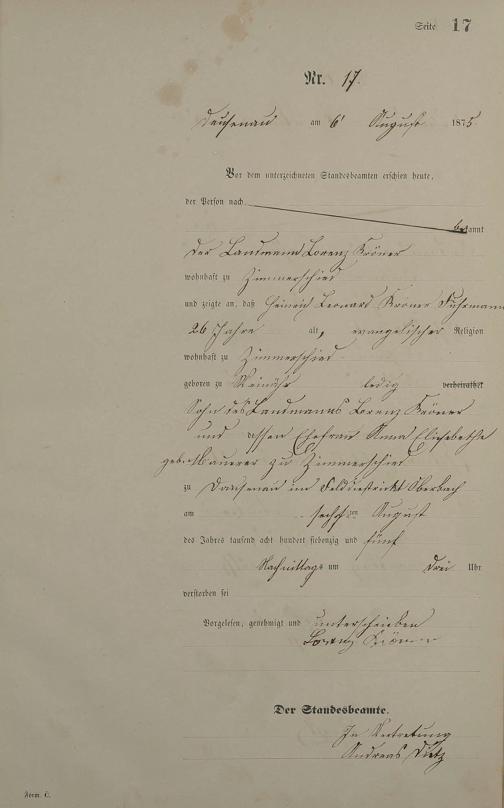 Seite 17
Nr. 17.
Dausenau am 6t August 1875
Vor dem unterzeichneten Standesbeamten erschien heute,
der Person nach
bekannt
der Landmann Lorenz Kröner
wohnhaft zu Zimmerschied
und zeigte an, daß Heinrich Leonard Kröner Fuhrmann
26 Jahre alt, evangelischer Religion
wohnhaft zu Zimmerschied
geboren zu ledig verheirathet
Sohn des Landmanns Lorenz Kröner
und dessen Ehefrau Anna Elisabetha
geb. zu Zimmerschied
zu Dausenau im Felddistrikt Oberbach
am sechsten August
des Jahres tausend acht hundert siebenzig und fünf
Nachmittags um drei Uhr
verstorben sei
Vorgelesen, genehmigt und unterschrieben
Lorenz Kröner
Der Standesbeamte.
In Vertretung
Andreas Dietz
Form. C.